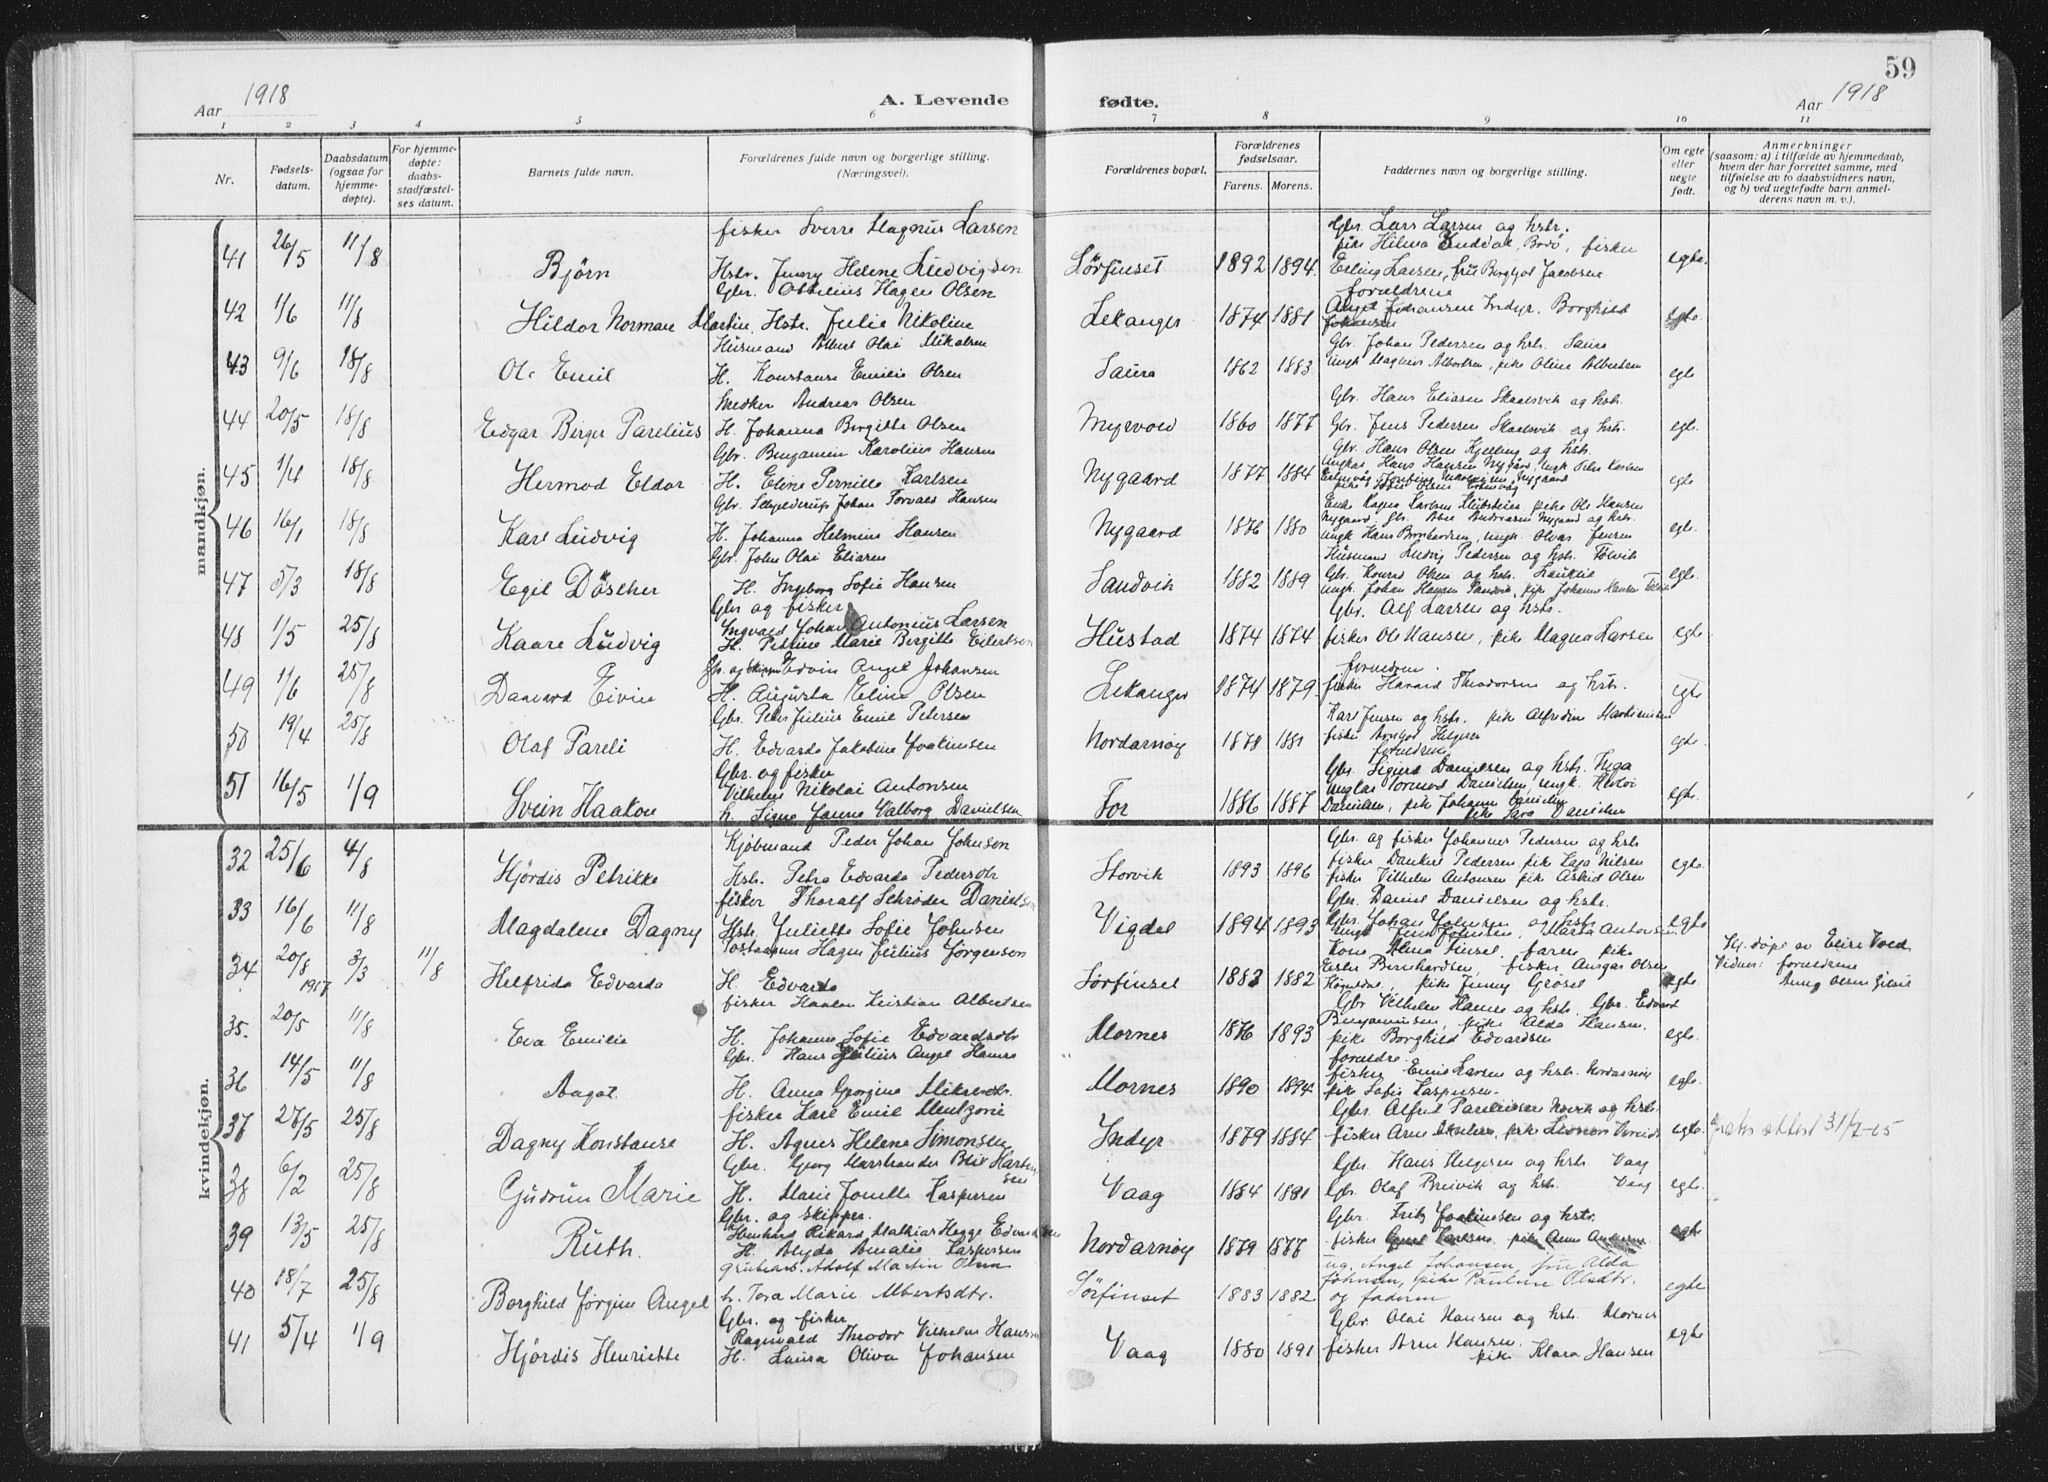 59
Aar 1918
A. Levende fødte.
Aar 1918
1 2 3 4 5 6 7 8 9 10 11
Nr.
Fødsels-datum.
Daabsdatum (ogsaa for hjemme-døpte).
For hjemme-døpte: daabs-stadfæstel-ses datum.
Barnets fulde navn.
Forældrenes fulde navn og borgerlige stilling. (Næringsvei).
Forældrenes bopæl.
Forældrenes fødselsaar.
Farens. Morens.
Faddernes navn og borgerlige stilling.
Om egte eller uegte født.
Anmerkninger
(saasom: a) i tilfælde av hjemmedaab,
hvem der har forrettet samme, med
tilføielse av to daabsvidners navn,
og b) ved uegtefødte barn anmel-
derens navn m. v.).
mandkjøn.
fisker Sverre Magnus Larsen
Gbr. Lars Larsen og hstr.
pike Hilma Bodø, fisker
41 26/5 11/8 Bjørn Hstr. Jenny Helene Ludvigsen Sørfinset 1892 1894 Erling Larsen, fru Borghjot Jacobsen egte
Gbr. Ottelius Hagen Olsen
forældrene
42 1/6 11/8 Hildor Norman Martin Hstr. Julie Nikoline Lekanger 1874 1881 Angel Johansen Indyr, Borghild Johansen egte
Husmand Albert Olai Mikalsen
Gbr. Johan Pedersen og hstr. Saura
43 9/6 18/8 Ole Emil H. Konstanse Emilie Olsen Saura 1862 1883 ungk Magnus Albertsen, pike Oline Albertsen egte
Snedker Andreas Olsen
Gbr. Hans Eliasen Skaalsvik og hstr.
44 20/5 18/8 Edgar Birger Parelius H. Johanna Birgitte Olsen Myrvold 1860 1877 Gbr. Jens Pedersen Skaalsvik og hstr. egte
Gbr. Benjamin Karolius Hansen
Gbr. Hans Olsen Kjelling og hstr.
45 1/4 18/8 Hermod Eldor H. Eline Pernille Karlsen Nygaard 1877 1884 Ungkar Hans Hansen Nygård, ungk Peter Karlsen egte
Gbr. Schjelderup Johan Torvald Hansen
46 16/1 18/8 Karl Ludvig H. Johanna Helmine Hansen Nygaard 1876 1880 Nygaard, Gbr. Abel Andreasen Nygaard og hstr. egte
Gbr. John Olai Eliasen
Husmand Ludvig Pedersen og hstr. Tølvik
47 5/3 18/8 Egil Döscher H. Ingeborg Sofie Hansen Sandvik 1882 1889 Gbr. Konrad Olsen og hstr. egte
ungk. Johan Hansen Sandvik, pike Johanna Hansen
Gbr og fisker
Ingvald Johan Antonius Larsen
Gbr. Alf Larsen og hstr.
48 1/5 25/8 Kaare Ludvig H. Petrine Marie Bergitte Eilertsen Hustad 1874 1874 fisker Ole Hansen, pike Magna Larsen egte
Edvin Angel Johansen
forældrene.
49 1/6 25/8 Danvard Eivin H. Augusta Eline Olsen Lekanger 1874 1879 fisker Harald Theodorsen og hstr. egte
Gbr. Peder Julius Emil Petersen
Karl Jensen og hstr. pike Alfredine Martinussen
50 19/4 25/8 Olaf Pareli H. Edvarda Jakobine Joakimsen Nordarnøy 1878 1881 fisker Helgesen egte
forældrene
Gbr. og fisker
Vilhelm Nikolai Antonsen
Gbr. Sigurd Danielsen og hstr. Inga
Ungkar Tormod Danielsen, ungk.
51 16/5 1/9 Svein Haakon h. Signe Janna Valborg Danielsen For 1886 1887 Danielsen, pike Johanne Danielsen egte
pike Sara Danielsen
kvindekjøn.
Kjøbmand Peder Johan Johnsen
Gbr. og fisker Johannes Pedersen og hstr
32 25/6 4/8 Hjørdis Petrikke Hstr. Petra Edvarda Pedersdtr Storvik 1893 1896 fisker Dankert Pedersen pike Kaja Nilsen egte
fisker Vilhelm Antonsen pike Astrid Olsen
fisker Thoralf Schrøder Danielsen
Gbr. Daniel Danielsen og hstr.
33 16/6 11/8 Magdalene Dagny Hstr. Juliette Sofie Johnsen Vigdel 1894 1893 Gbr. Johan Johnsen og hstr. egte
ungk Jens Johnsen, Marta Antonsen
Hagen Julius Jørgensen
Kone Alma Finset, faren pike
34 20/8 1917 3/3 11/8 Helfrida Edvarda H. Edvarda Sørfinset 1883 1882 Ester Bernhardsen, fisker Ansgar Olsen egte
pike Jenny Grøset
Hj. døpt av Elise Vold
Vidner: forældrene
fisker Haakon Kristian Albertsen
Gbr Vilhelm Hansen og hstr. Gbr. Edvard
Benjaminsen, pike Alda Hansen,
35. 20/5 11/8 Eva Emilie H. Johanna Sofie Edvardsdtr Mornes 1876 1893 pike Borghild Edvardsen egte
Gbr. Hans Julius Angel Hansen
forældre.
fisker Emil Larsen og hstr. Nordarnøy
36 14/5 11/8 Aagot H. Anna Georgine Mikalsdtr. Mornes 1890 1894 pike Sofie Kaspersen. egte
fisker Karl Emil Mentzoni
Gbr. Alfred Pareliussen Novik og hstr.
37 27/5 25/8 Dagny Konstanse H. Agnes Helene Simonsen Indyr 1879 1884 fisker Arne pike egte
attest 31/7-65
Gbr. Georg Marstrander Blix Hartvigsen
Gbr. Hans Helgesen og hstr. Vaag
38 6/2 25/8 Gudrun Marie H. Marie Jonette Kaspersen Vaag 1884 1881 Gbr. Olaf Breivik og hstr. Vaag egte
Gbr. og skipper.
Henhard Rikard Mathias Hegge Edvardsen
Gbr. Fritz Joakimsen og hstr.
39 13/5 25/8 Ruth. H. Alyda Amalie Kaspersen Nordarnøy 1879 1877 fisker Karlsen, pike Anna egte
grubearb. Adolf Martin Olsen
ug. Angel Johansen, fru Alda
Johnsen, pike Pauline Olsdtr.
40 18/7 25/8 Borghild Jørgine Angel h. Tora Marie Albertsdtr. Sørfinset 1883 1882 og faderen egte
Gbr. og fisker
Ragnvald Theodor Vilhelm Hansen
Gbr Olai Hansen og hstr. Mornes
41 5/4 1/9 Hjørdis Henriette H. Laura Oliva Johansen Vaag 1880 1891 fisker Arne Hansen. egte
pike Klara Hansen